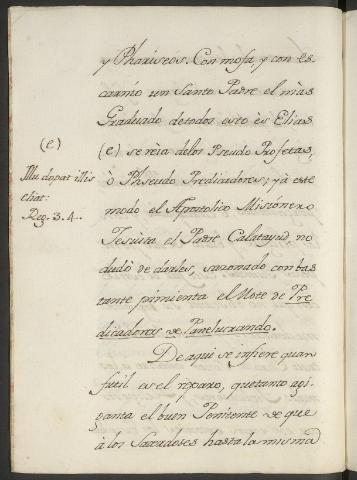 y Phariseos. Con mofa, y con es
carnio un Santo Padre el màs
Graduado detodos esto ès Elias
(e) sereìa delos Pseudo Profetas,
ò Phseudo Predicadores; yà este
modo el Apostolico Missionero
Jesuita el Padre Calatayud, no
dudò de darles, sazonado con bas
tante pimienta el Mote de Pre
dicadores de Panelucrando.
De aqui se infiere quan
futil es el reparo, que tanto agi
ganta el buen Penitente de que
à los Sacerdoses hasta la misma
(e)
Illu
illis
elias:
Reg. 3. 4.